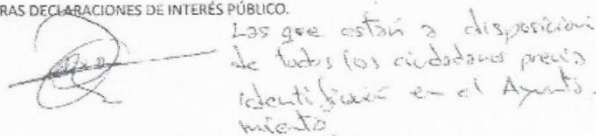 RAS DECLARACIONES DE INTERÉS PÚBLICO.
Las que están a disposición
de todos los ciudadanos previa
identificación en el Ayunta-
miento.